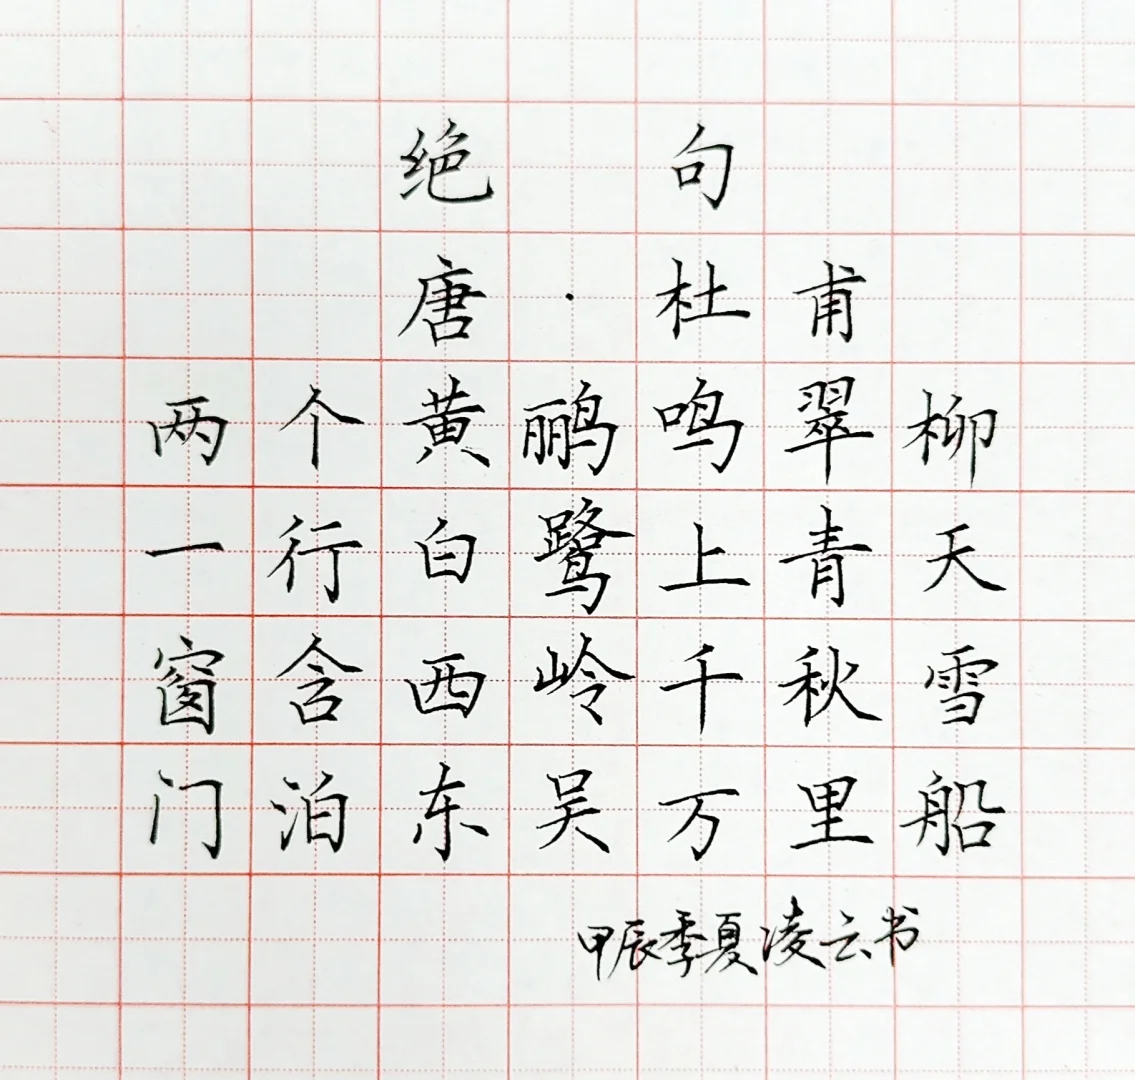 绝句
唐·杜甫
两个黄鹂鸣翠柳
一行白鹭上青天
窗含西岭千秋雪
门泊东吴万里船
甲辰季夏凌云书